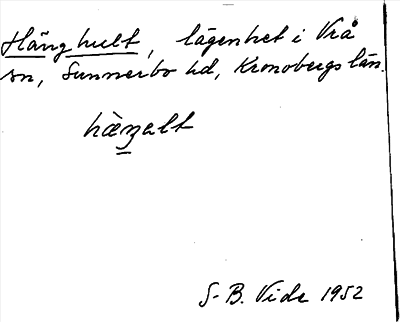 Hänghult, lägenhet i Vrå
sn, Sunnerbo hd, Kronobergs län.
hæ̀ŋalt
S-B. Vide 1952